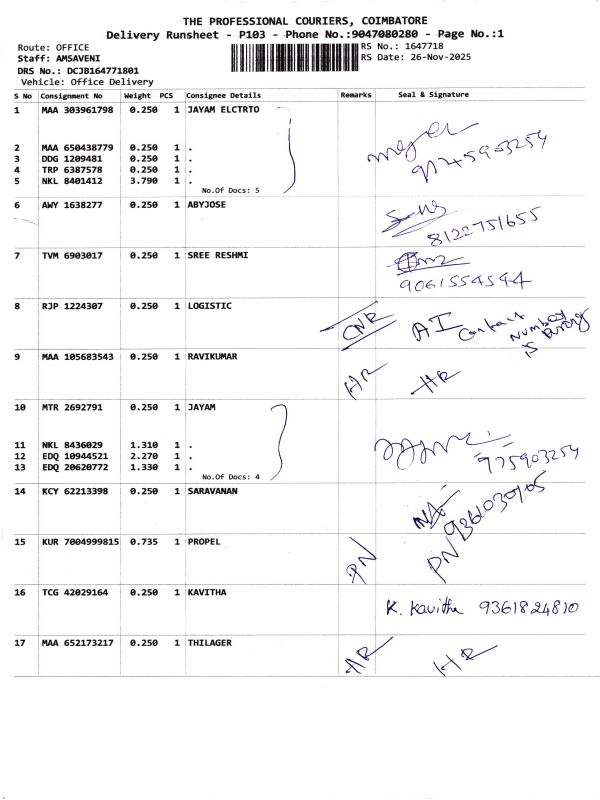 THE PROFESSIONAL COURIERS, COIMBATORE
Delivery Runsheet - P103 - Phone No.:9047080280 - Page No.:1
Route: OFFICE RS No.: 1647718
Staff: AMSAVENI RS Date: 26-Nov-2025
DRS No.: DCJB164771801
Vehicle: Office Delivery
S No Consignment No Weight PCS Consignee Details Remarks Seal & Signature
1 MAA 303961798 0.250 1 JAYAM ELCTRTO
2 MAA 650438779 0.250 1 .
3 DDG 1209481 0.250 1 .
4 TRP 6387578 0.250 1 .
5 NKL 8401412 3.790 1 .
No.Of Docs: 5
6 AWY 1638277 0.250 1 ABYJOSE
8122751655
7 TVM 6903017 0.250 1 SREE RESHMI
9061554594
8 RJP 1224307 0.250 1 LOGISTIC
CNR AI Contact Number is Wrong
9 MAA 105683543 0.250 1 RAVIKUMAR
HR HR
10 MTR 2692791 0.250 1 JAYAM
11 NKL 8436029 1.310 1 .
12 EDQ 10944521 2.270 1 .
13 EDQ 20620772 1.330 1 .
975903254
No.Of Docs: 4
14 KCY 62213398 0.250 1 SARAVANAN
15 KUR 7004999815 0.735 1 PROPEL
PN PN
16 TCG 42029164 0.250 1 KAVITHA
K. Kavitha 9361824810
17 MAA 652173217 0.250 1 THILAGER
HR HR